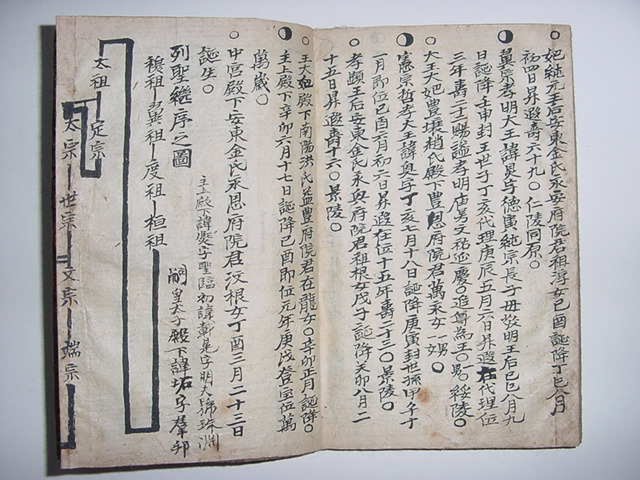 妃純元王后安東金氏永安府院君祖淳女己酉誕降丁巳八月
初四日昇遐壽六十九○仁陵同原○
翼宗孝明大王諱昊字德寅純宗長子母敬明王后己巳八月九
日誕降壬申封王世子丁亥代理庚辰五月六日昇遐在代理位
三年壽二十二賜諡孝明廟号文祜慶○追尊為王○号綏陵○
大王大妃豊壤趙氏殿下豊恩府院君萬永女一男○
憲宗哲孝大王諱奐字丁亥七月十八日誕降庚寅封世孫甲午十
一月即位己酉六月初六日昇遐在位十五年壽二十三○景陵○
孝顯王后安東金氏永興府院君祖根女戊子誕降癸卯八月二
十五日昇遐壽十六○景陵○
王大妃殿下南陽洪氏益豊府院君在龍女○辛卯正月誕降○
主上殿下辛卯六月十七日誕降己酉即位元年庚戌登宝位萬
萬歲○
中宮殿下安東金氏永恩府院君汶根女丁酉三月二十三日
誕生○
主上殿下諱字聖臨初諱載晃字明夫號珠淵
列聖繼序之圖
嗣皇太子殿下諱坧字聲邦
穆祖 翼祖 度祖 桓祖
太祖 定宗
太宗 世宗 文宗 端宗